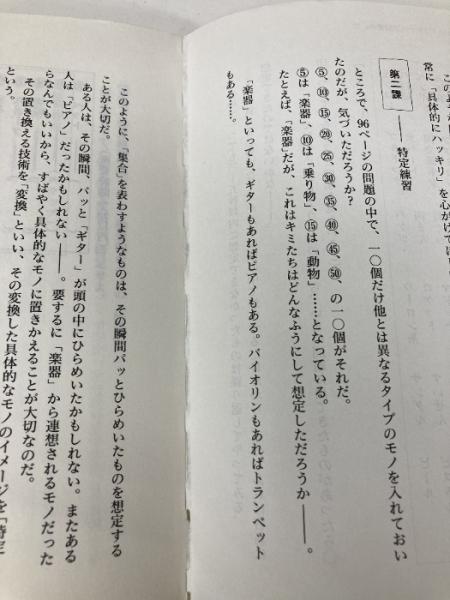 常に「具体的にハッキリ」を心がけて
第二課
――特定練習
ところで、96ページの問題の中で、一〇個だけ他とは異なるタイプのモノを入れておい
たのだが、気づいただろうか?
⑤、⑩、⑮、⑳、㉕、㉚、㉟、㊵、㊺、㊿、の一〇個がそれだ。
⑤は「楽器」、⑩は「乗り物」、⑮は「動物」……となっている。
たとえば、「楽器」だが、これはキミたちはどんなふうにして想定しただろうか――。
「楽器」といっても、ギターもあればピアノもある。バイオリンもあればトランペット
もある……。
このように、「集合」を表わすようなものは、その瞬間パッとひらめいたものを想定する
ことが大切だ。
ある人は、その瞬間、パッと「ギター」が頭の中にひらめいたかもしれない。またある
人は「ピアノ」だったかもしれない――。要するに「楽器」から連想されるモノだった
らなんでもいいから、すばやく具体的なモノに置きかえることが大切なのだ。
その置き換える技術を「変換」といい、その変換した具体的なモノのイメージを「特定
という。